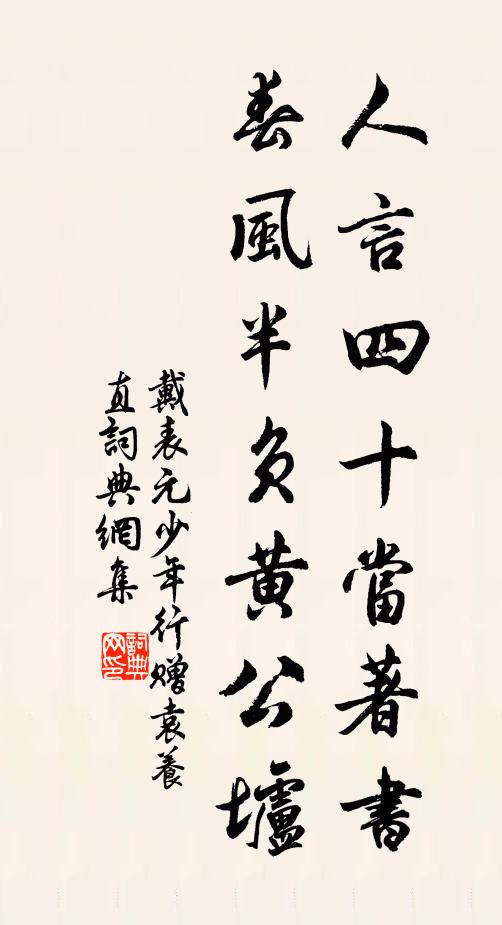 人言四十當著書
春風半負黃公壚
戴表元少年行贈袁養
直詞典網集
詞典網印